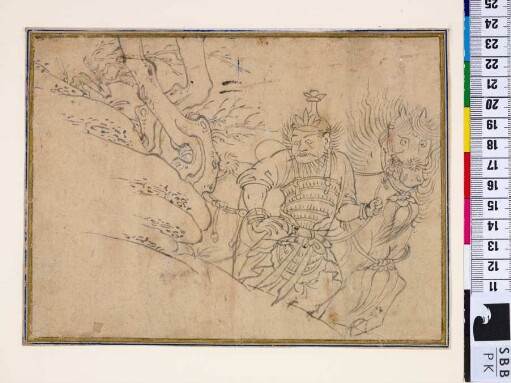 25
24
23
22
21
20
19
18
17
16
15
14
13
12
11
SBB
PK